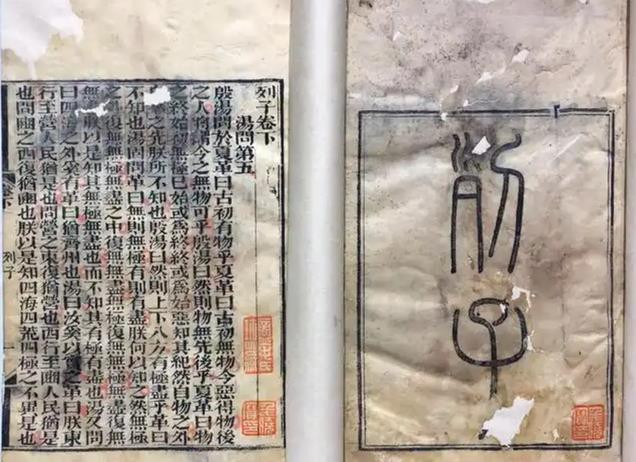 列子
列子卷下
湯問第五
殷湯問於夏革曰古初有物乎夏革曰古初無物今惡得物後
之人將謂今之無物可乎殷湯曰然則物無先後乎夏革曰物
之終始初無極已始或爲終終或爲始惡知其紀然自物之外
之先朕所不知也殷湯曰然則上下八方有極盡乎革曰
不知也湯固問革曰無則無極有則有盡朕何以知之然無極
之外復無無極無盡之中復無無盡無極復無無極無盡復無
無盡朕以是知其無極無盡也而不知其有極有盡也湯又問
曰四海之外奚有革曰猶齊州也湯曰汝奚以實之革曰朕東
行至營人民猶是也問營之東復猶營也西行至豳人民猶是
也問豳之西復猶豳也朕以是知四海四荒四極之不異是也
列子